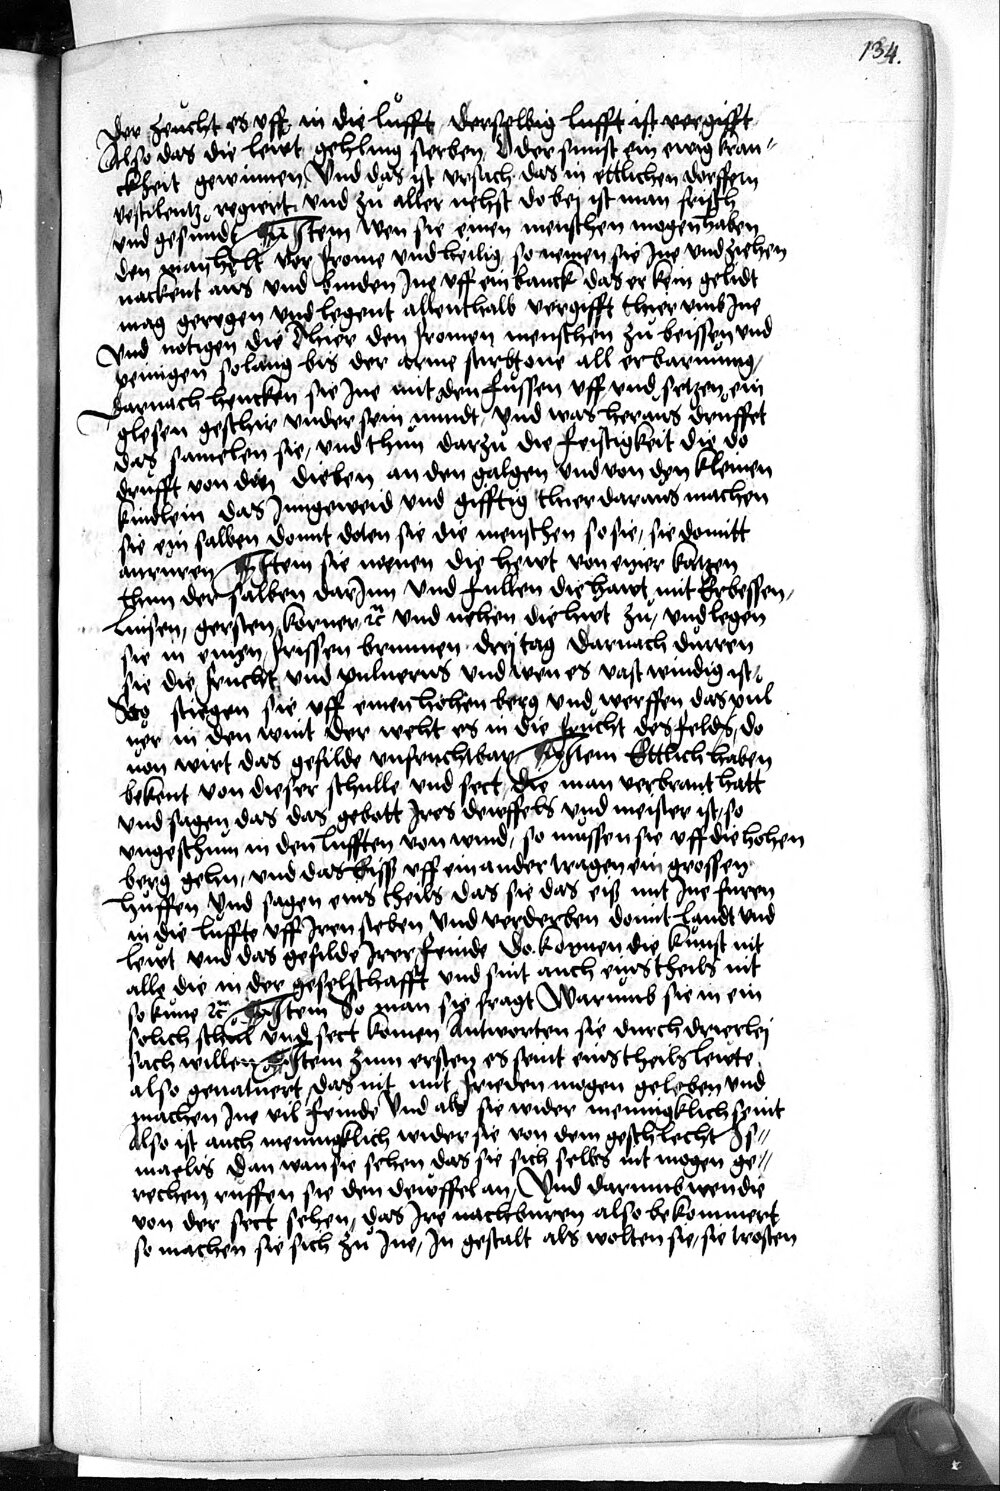 134.
der zeucht es uff in die lufft derselbig lufft ist vergifft
Also das die lewt gehling sterben Oder sunst ein ewig kran"
ckheit gewinnen, Vnd das ist vrsach das in ettlichen dorffern
pestilentz regiert, vnd zu aller nehst do bei ist man frisch
vnd gesundt Item wen sie einen menschen mogen haben
den man helt vor frome vnd heilig so nemen sie Ine vnd ziehen
nackent aus vnd binden Ine vff ein banck das er kein gelidt
mag geregen vnd legent allenthalb vergifft thier vmb Ine
Vnd nötigen die thier den fromen menschen zu beissen vnd
peinigen solang bis der arme stirbt one all erbarmung,
Darnach hencken sie Ine mit den fussen vff vnd setzen ein
glesen geschir vnder sein mundt, Vnd was heraus druffet
das samelen sie, vnd thun darzu die feistigkeit die do
drufft von den dieben an den galgen Vnd von den kleinen
kindlein das Inngeweid vnd gifftig thier daraus machen
sie ein salben domit doten sie die menschen so sie, sie domitt
anruren Item sie nemen die hewt von einer katzen
thun der salben darInn Vnd fullen die hawt mit Erbessen,
Linsen, gersten korner ꝛc Vnd nehen die hewt zu, vnd legen
sie in einen frissen brunnen drei tag Darnach durren
sie die frucht vnd puluerns vnd wen es vast windig ist,
So stiegen sie vff einen hohen berg vnd werffen das pul
uer in den wint der weht es in die frucht des felds, do
uon wirt das gefilde vnfruchtbar, Item Ettlich haben
bekent von dieser schulle vnd sect, die man verbrant hatt
vnd sagen das das gebott Ires dewffels vnd meister ist, so
vngeschtum in den lufften von wind, so mussen sie vff die hohen
berg gehn, vnd das Eiss vff ein ander tragen ein grossen
huffen Vnd sagen eins theils das sie das eiß mit Ine furen
in die luffte vff Iren steben Vnd verderben domit Landt vnd
lewt vnd das gefilde Irer feinde Do konnen die kunst nit
alle die in der geselschafft vnd sint auch eins theils nit
so kune ꝛc Item So man sie fragt Warumb sie in ein
solich schul vnd sect komen Antworten sie durch drierlei
sach willen Item zum ersten es seint eins theils lewte
also genatuert, das nit mit frieden mogen geleben vnd
machen Ine vil feinde Vnd als sie wider menigklich seint
Also ist auch menigklich wider sie von dem geschlecht Is"
maelis Dan wan sie sehen das sie sich selbs nit mogen ge"
rechen ruffen sie den dewffel an, Vnd darumb wen die
von der sect sehen, das Ire nachburen also bekommert
so machen sie sich zu Ine, In gestalt als wolten sie, sie trosten